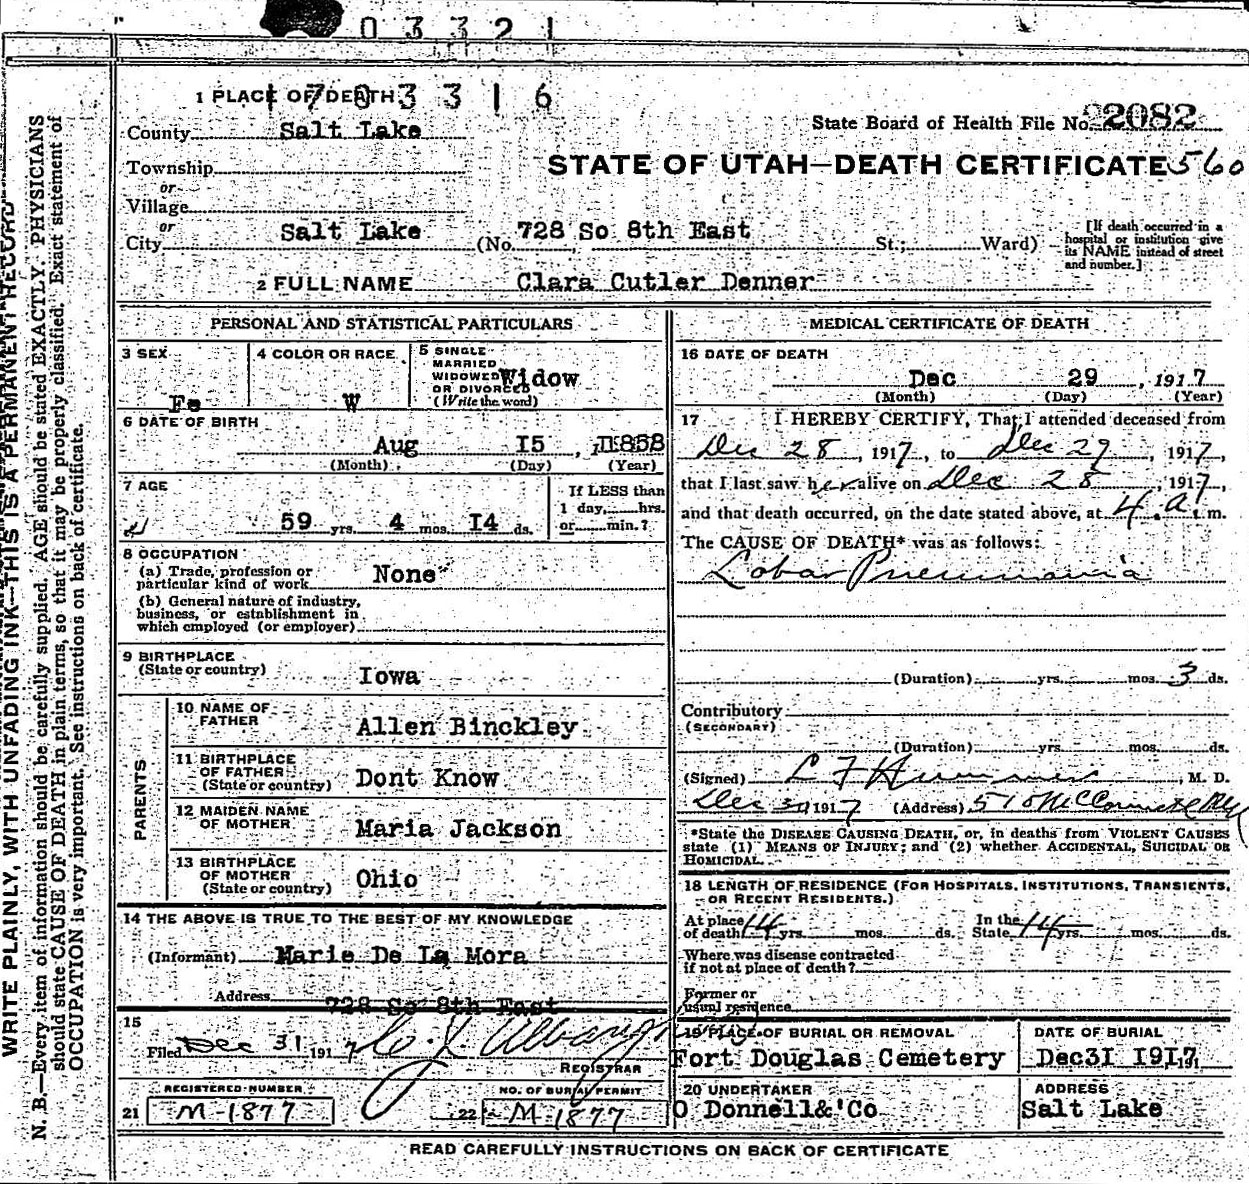 03321
1 PLACE OF DEATH
1703316
State Board of Health File No. 22082
County Salt Lake
STATE OF UTAH—DEATH CERTIFICATE 560
Township
or
Village
or
City Salt Lake (No. 728 So 8th East St.; Ward)
[If death occurred in a
hospital or institution give
its NAME instead of street
and number.]
2 FULL NAME Clara Cutler Denner
PERSONAL AND STATISTICAL PARTICULARS
3 SEX
Fe
4 COLOR OR RACE
W
5 SINGLE
MARRIED
WIDOWED
OR DIVORCED
(Write the word)
Widow
6 DATE OF BIRTH
Aug 15, 1858
(Month) (Day) (Year)
7 AGE
59 yrs. 4 mos. 14 ds.
If LESS than
1 day, hrs.
or min.?
8 OCCUPATION
(a) Trade, profession or
particular kind of work None
(b) General nature of industry,
business, or establishment in
which employed (or employer)
9 BIRTHPLACE
(State or country) Iowa
PARENTS
10 NAME OF
FATHER Allen Binckley
11 BIRTHPLACE
OF FATHER
(State or country) Dont Know
12 MAIDEN NAME
OF MOTHER Maria Jackson
13 BIRTHPLACE
OF MOTHER
(State or country) Ohio
14 THE ABOVE IS TRUE TO THE BEST OF MY KNOWLEDGE
(Informant) Marie De La Mora
Address 728 So 8th East
15
Filed Dec 31 1917
REGISTRAR
REGISTERED NUMBER
21 M-1877
NO. OF BURIAL PERMIT
22 M-1877
MEDICAL CERTIFICATE OF DEATH
16 DATE OF DEATH
Dec 29, 1917
(Month) (Day) (Year)
17 I HEREBY CERTIFY, That I attended deceased from
Dec 28, 1917, to Dec 29, 1917,
that I last saw her alive on Dec 28, 1917,
and that death occurred, on the date stated above, at 4 a.m.
The CAUSE OF DEATH* was as follows:
Lobar Pneumonia
(Duration) yrs. mos. 3 ds.
Contributory
(SECONDARY)
(Duration) yrs. mos. ds.
(Signed) M. D.
Dec 30 1917 (Address) 510
*State the DISEASE CAUSING DEATH, or, in deaths from VIOLENT CAUSES
state (1) MEANS OF INJURY; and (2) whether ACCIDENTAL, SUICIDAL OR
HOMICIDAL.
18 LENGTH OF RESIDENCE (FOR HOSPITALS, INSTITUTIONS, TRANSIENTS,
OR RECENT RESIDENTS.)
At place
of death 14 yrs. mos. ds.
In the
State 14 yrs. mos. ds.
Where was disease contracted
if not at place of death?
Former or
usual residence
19 PLACE OF BURIAL OR REMOVAL
Fort Douglas Cemetery
DATE OF BURIAL
Dec31 1917 191
20 UNDERTAKER
O Donnell&Co
ADDRESS
Salt Lake
READ CAREFULLY INSTRUCTIONS ON BACK OF CERTIFICATE
WRITE PLAINLY, WITH UNFADING INK—THIS IS A PERMANENT RECORD
N. B.—Every item of information should be carefully supplied. AGE should be stated EXACTLY. PHYSICIANS
should state CAUSE OF DEATH in plain terms, so that it may be properly classified. Exact statement of
OCCUPATION is very important. See instructions on back of certificate.